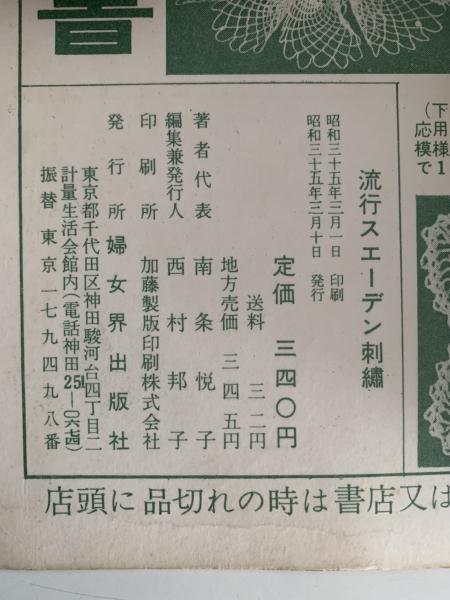 書
下用様1
(応模で
流行スエーデン刺繡
昭和三十五年三月一日 印刷
昭和三十五年三月十日 発行
定価 三四〇円
送料 三二円
地方売価 三四五円
著者代表 南条悦子
編集兼発行人 西村邦子
印刷所 加藤製版印刷株式会社
発行所 婦女界出版社
東京都千代田区神田駿河台四丁目二
計量生活会館内(電話神田251-〇六七四)
振替 東京一七九四九八番
店頭に品切れの時は書店又は